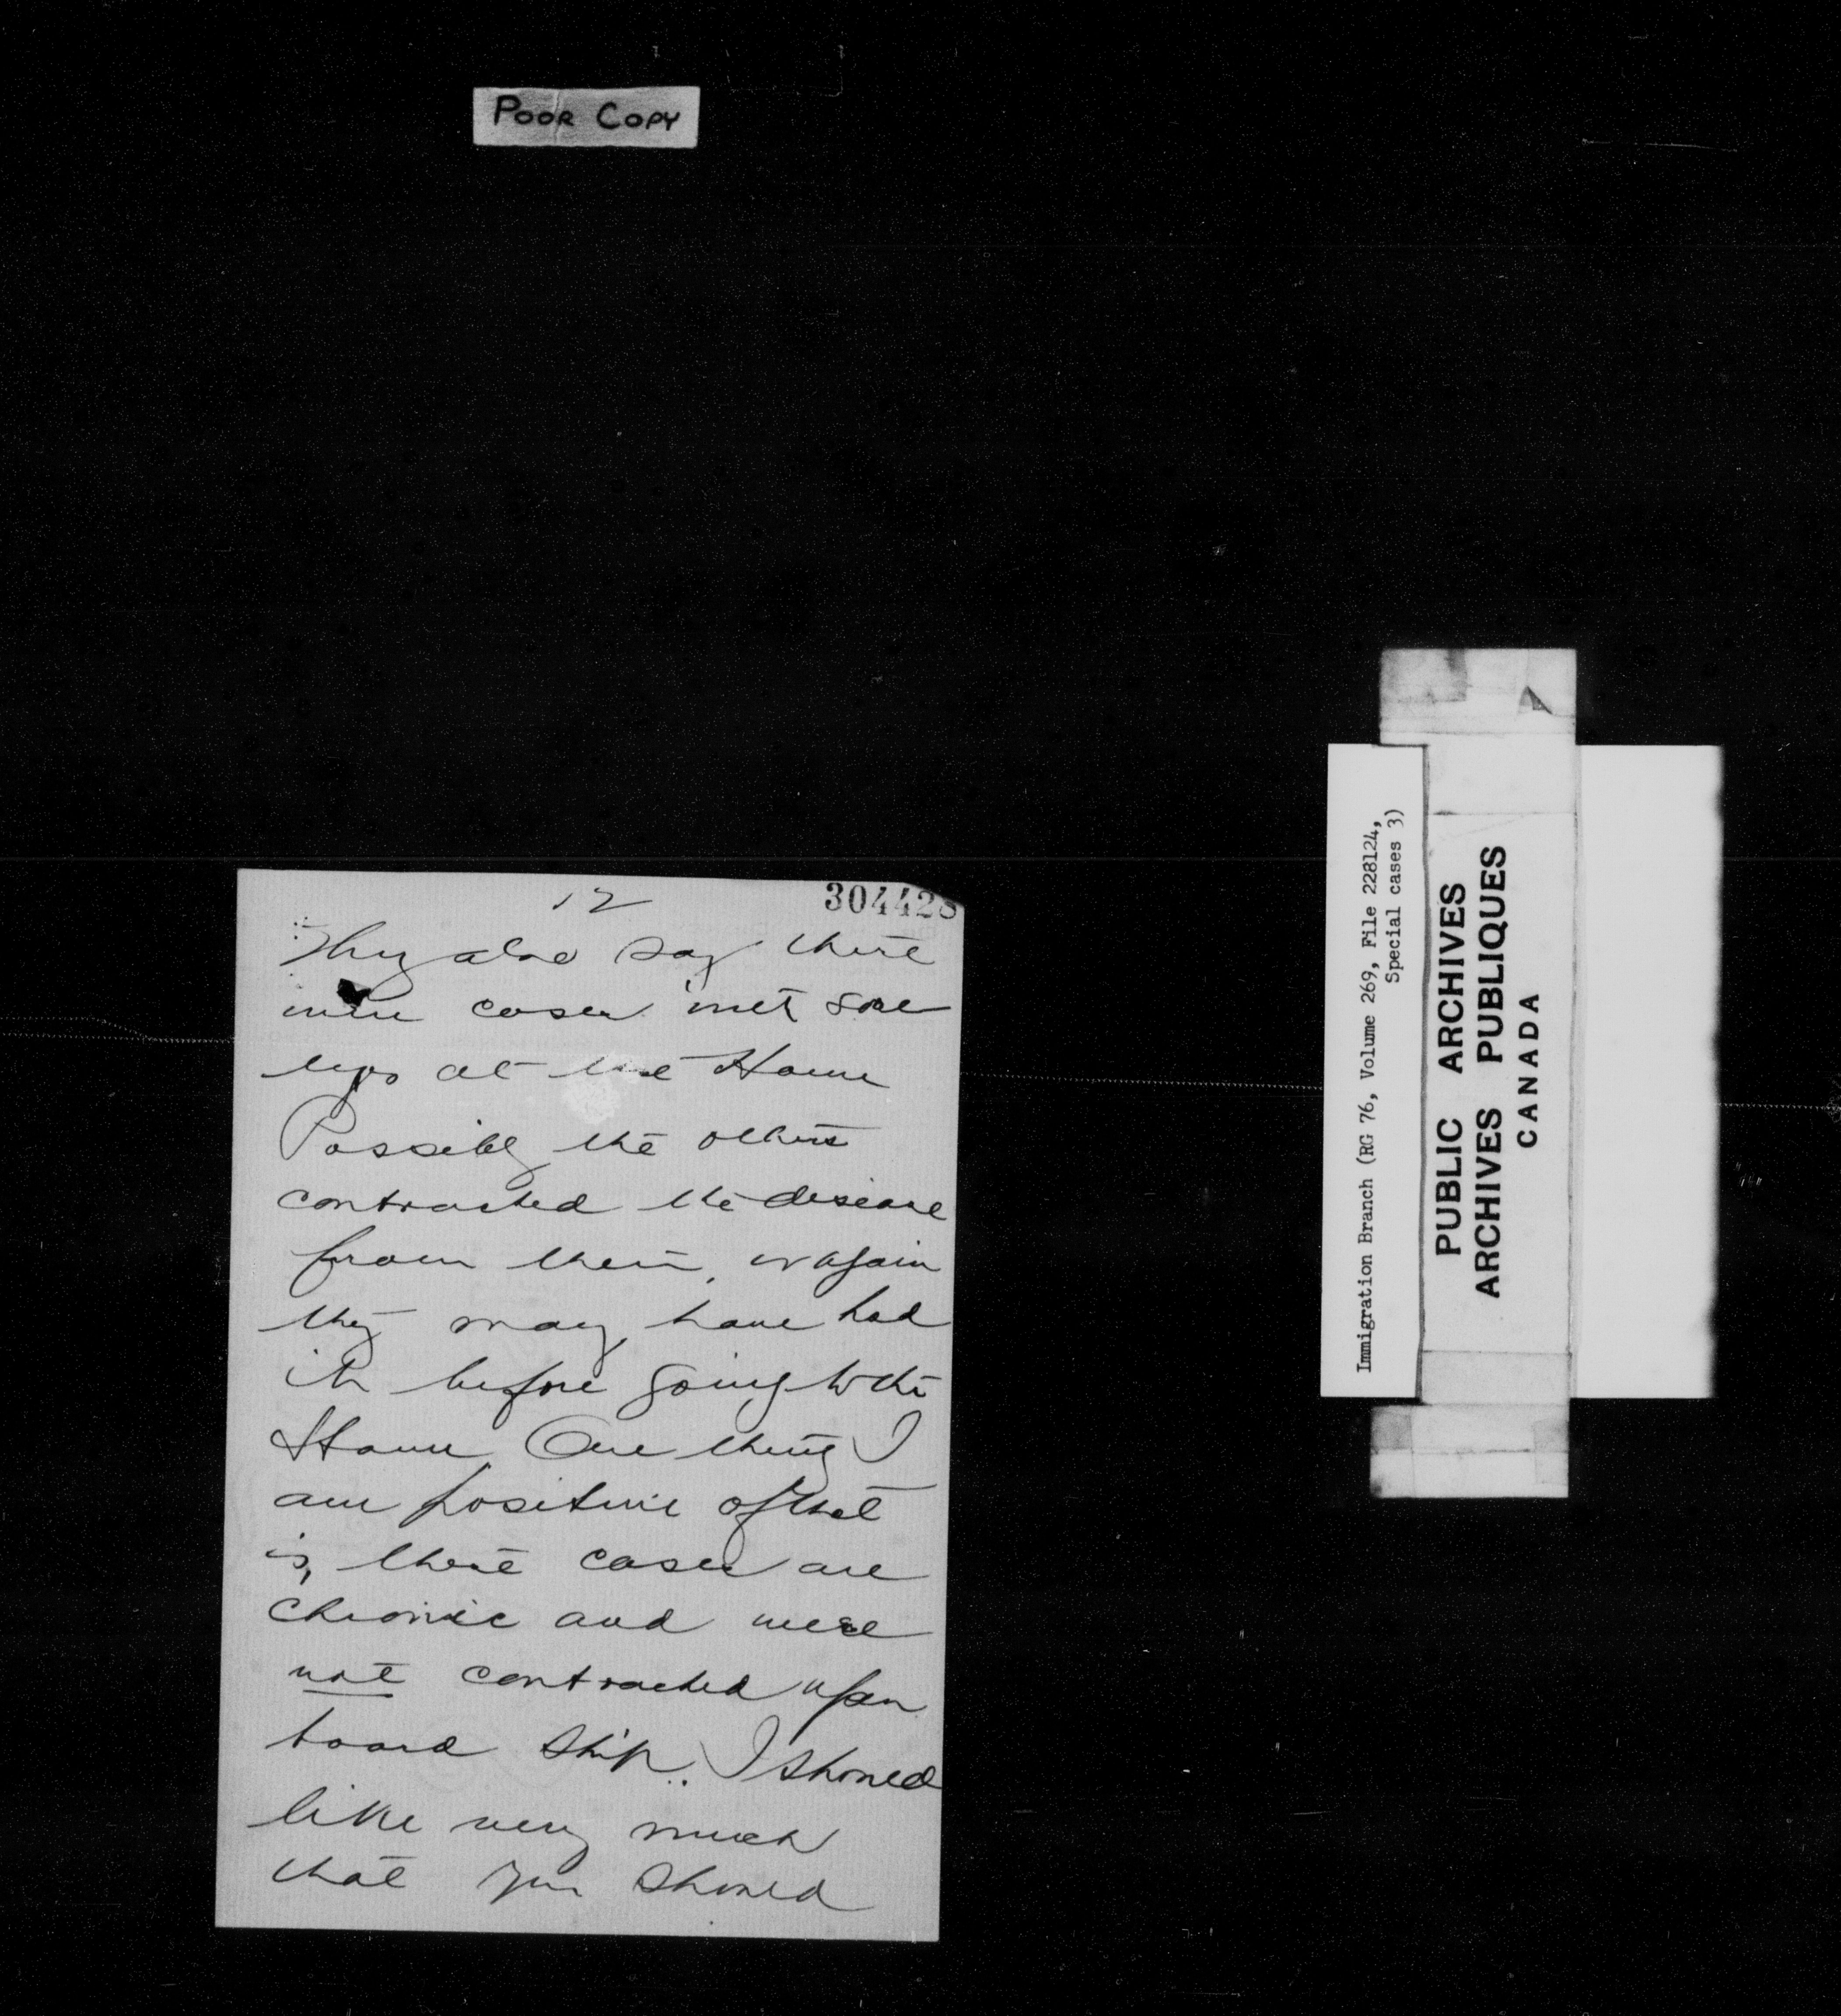 POOR COPY
12
304428
They also say there
were cases met sore
eyes at the Home
Possibly the others
contracted the disease
from them, or again
they may have had
it before going to the
Home. One thing I
am positive of that
is, these cases are
chronic and were
not contracted upon
board ship. I should
like very much
that you should
Immigration Branch (RG 76, Volume 269, File 228124,
Special cases 3)
PUBLIC ARCHIVES
ARCHIVES PUBLIQUES
CANADA